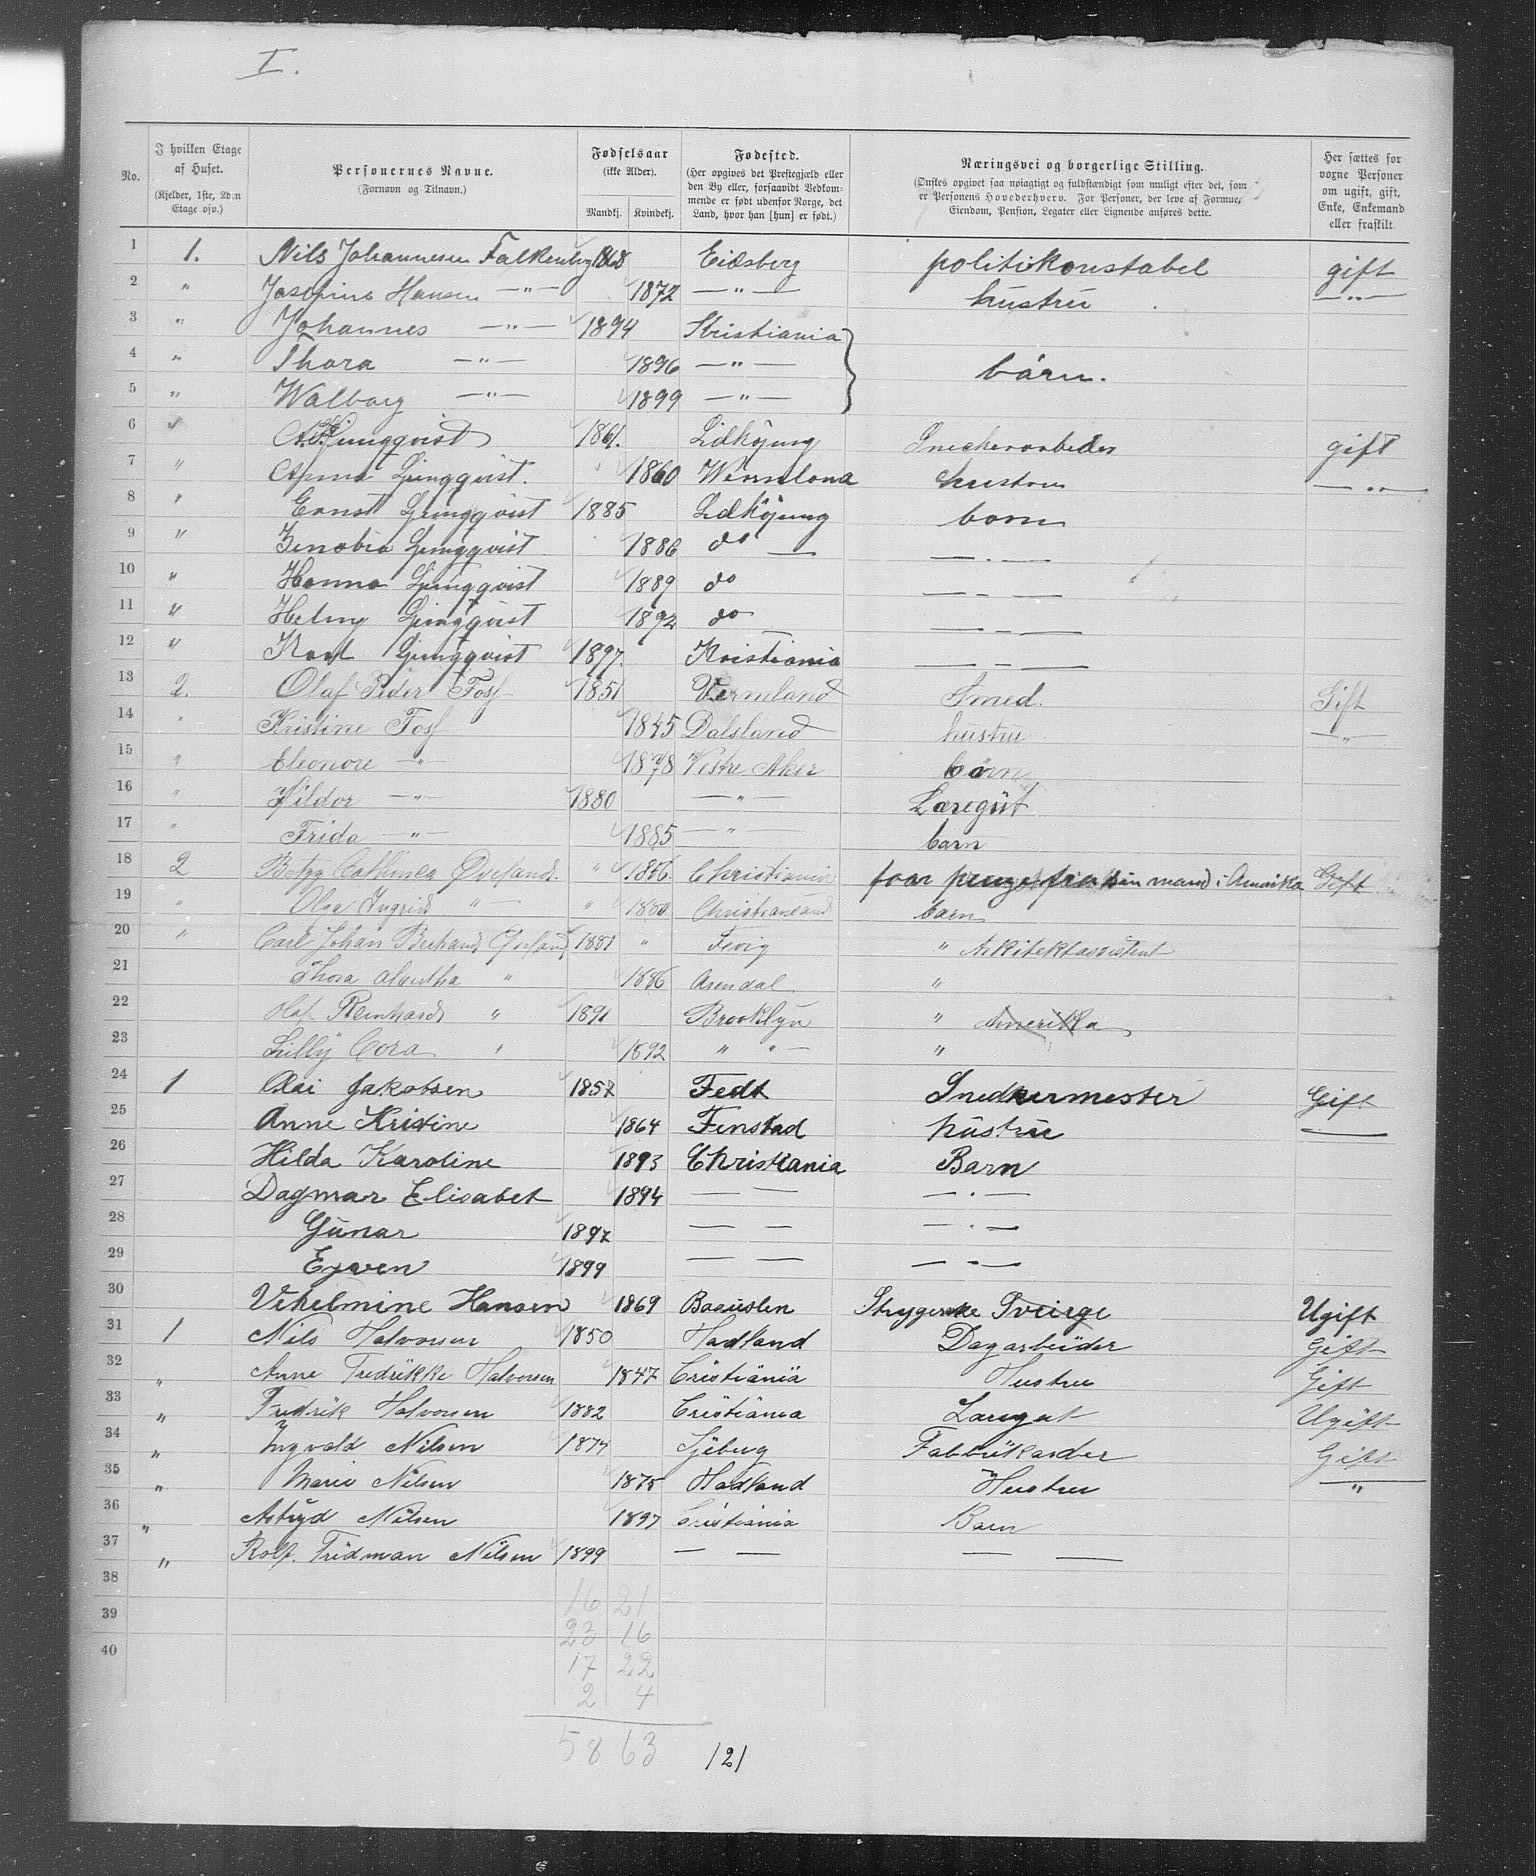 I.
No.
I hvilken Etage af Huset. (Kjelder, 1ste, 2den Etage osv.)
Personernes Navne. (Fornavn og Tilnavn.)
Fødselsaar (ikke Alder). Mandkj. Kvindekj.
Fødested. (Her opgives det Prestegjæld eller den By eller, forsaavidt Vedkommende er født udenfor Norge, det Land, hvor han [hun] er født.)
Næringsvei og borgerlige Stilling. (Ønskes opgivet saa nøiagtigt og fuldstændigt som muligt efter det, som er Personens Hovederhverv. For Personer, der leve af Formue, Eiendom, Pension, Legater eller Lignende anføres dette.)
Her sættes for voxne Personer om ugift, gift, Enke, Enkemand eller fraskilt.
1 1. Nils Johannesen Falkenberg 1868 Eidsberg politikonstabel gift
2 " Josefine Hansen —"— 1872 —"— hustru —"—
3 " Johannes —"— 1894 Kristiania
4 " Thora —"— 1896 —"— børn.
5 " Walborg —"— 1899 —"—
6 " Ljungqvist 1861. Lidköping Snekerarbeder gift
7 " Anna Ljungqvist. " 1860 Wermlona hustru —"—
8 " Ernst Ljungqvist 1885 Lidköping born
9 " Zenobia Ljungqvist 1886 do — — . —
10 " Hanna Ljungqvist 1889 do — - —
11 " Helmy Ljungqvist 1892 do — - —
12 " Karl Ljungqvist 1897. Kristiania — - —
13 2. Olaf Peder Foss 1851 Vermland Smed. Gift
14 " Kristine Foss 1845 Dalsland hustru —"—
15 " Eleonore —"— 1878 Vestre Aker børn
16 " Hildor —"— 1880 —"— Læregut
17 " Frida —"— 1885 —"— barn
18 2 Betzy Cathinca Øveland " 1856 Christiania faar penge fra sin mand i Amerika Gift
19 " Olga Ingrid " " 1880 Christiansand barn
20 " Carl Johan Bertrand Øveland 1881 " Fevig " Arkitektassistent
21 Thora Alvertha " 1886 Arendal "
22 Olaf Reinhard " 1891 Brooklyn " Amerika
23 Lilly Cora " 1892 " " — "
24 1 Jakobsen 1857 Fedt Snedkermester Gift
25 Anne Kristine 1864 Fenstad hustru —
26 Hilda Karoline 1893 Christiania Barn
27 Dagmar Elisabet 1894 — — — . —
28 Gunar 1897 — — — . —
29 Ejven 1899 — — — . —
30 Vihelmine Hansen 1869 Baauslen Strygerske Sverige Ugift
31 1 Nils Halvorsen 1850 Hadland Dagarbeider Gift
32 " Anne Fredrikke Halvorsen 1847 Cristiania Hustru Gift
33 " Fredrik Halvorsen 1882 Cristiania Laregut Ugift
34 " Ingvald Nilsen 1874 Sjeberg Fabbrikarder Gift
35 " Marie Nilsen 1875 Hadland Hustru "
36 " Astryd Nilsen 1897 Cristiania Barn
37 " Rolf Fridman Nilsen 1899 — — — —
38
39
40
16 21
23 16
17 22
2 4
58 63 121